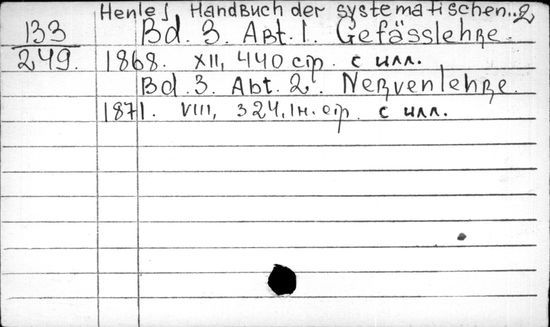 Henle J. Handbuch der systematischen..2
133 Bd. 3. Abt. 1. Gefässlehre.
249. 1868. XII, 440 стр. с илл.
Bd. 3. Abt. 2. Nervenlehre.
1871. VIII, 324, IH. стр. с илл.